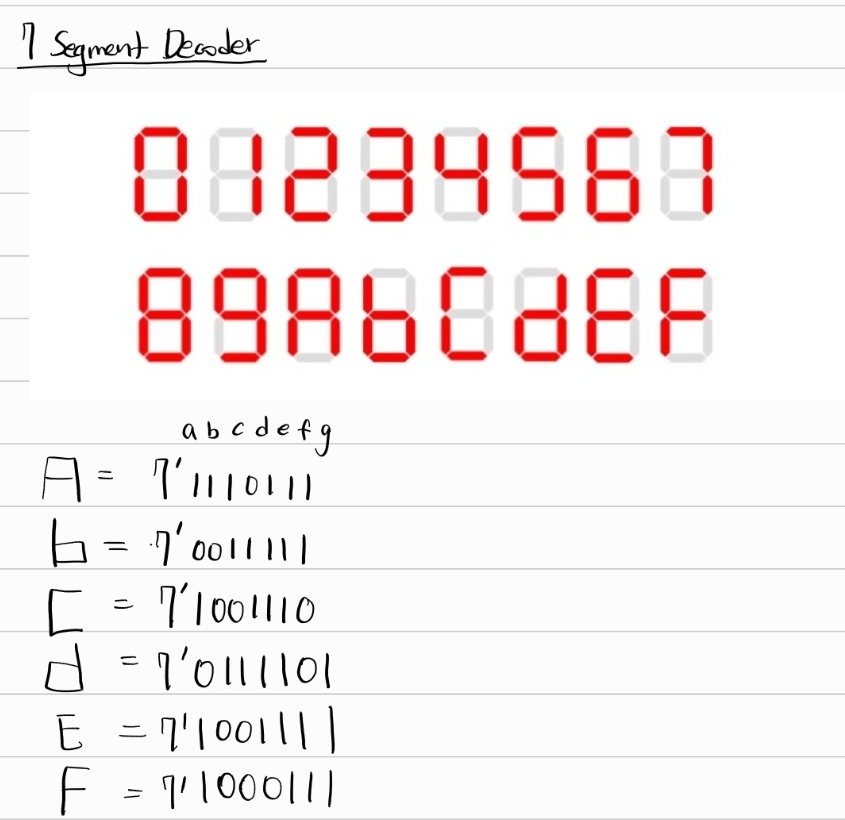 7 Segment Decoder
0 1 2 3 4 5 6 7
8 9 A b C d E F
a b c d e f g
A = 7'1110111
b = 7'0011111
C = 7'1001110
d = 7'0111101
E = 7'1001111
F = 7'1000111